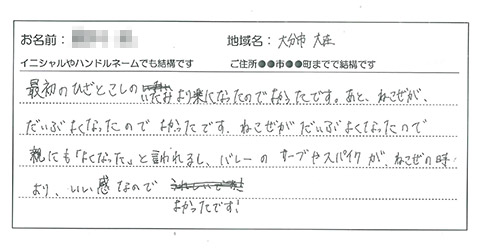 お名前： 地域名：大分市 大在
イニシャルやハンドルネームでも結構です ご住所●●市●●町までで結構です
最初のひざとこしのいたみより楽になったのでよかったです。あと、ねこぜが、
だいぶよくなったので よかったです。ねこぜがだいぶよくなったので
親にも「よくなった」と言われるし、バレーのサーブやスパイクが、ねこぜの時
より、いい感なので
よかったです！